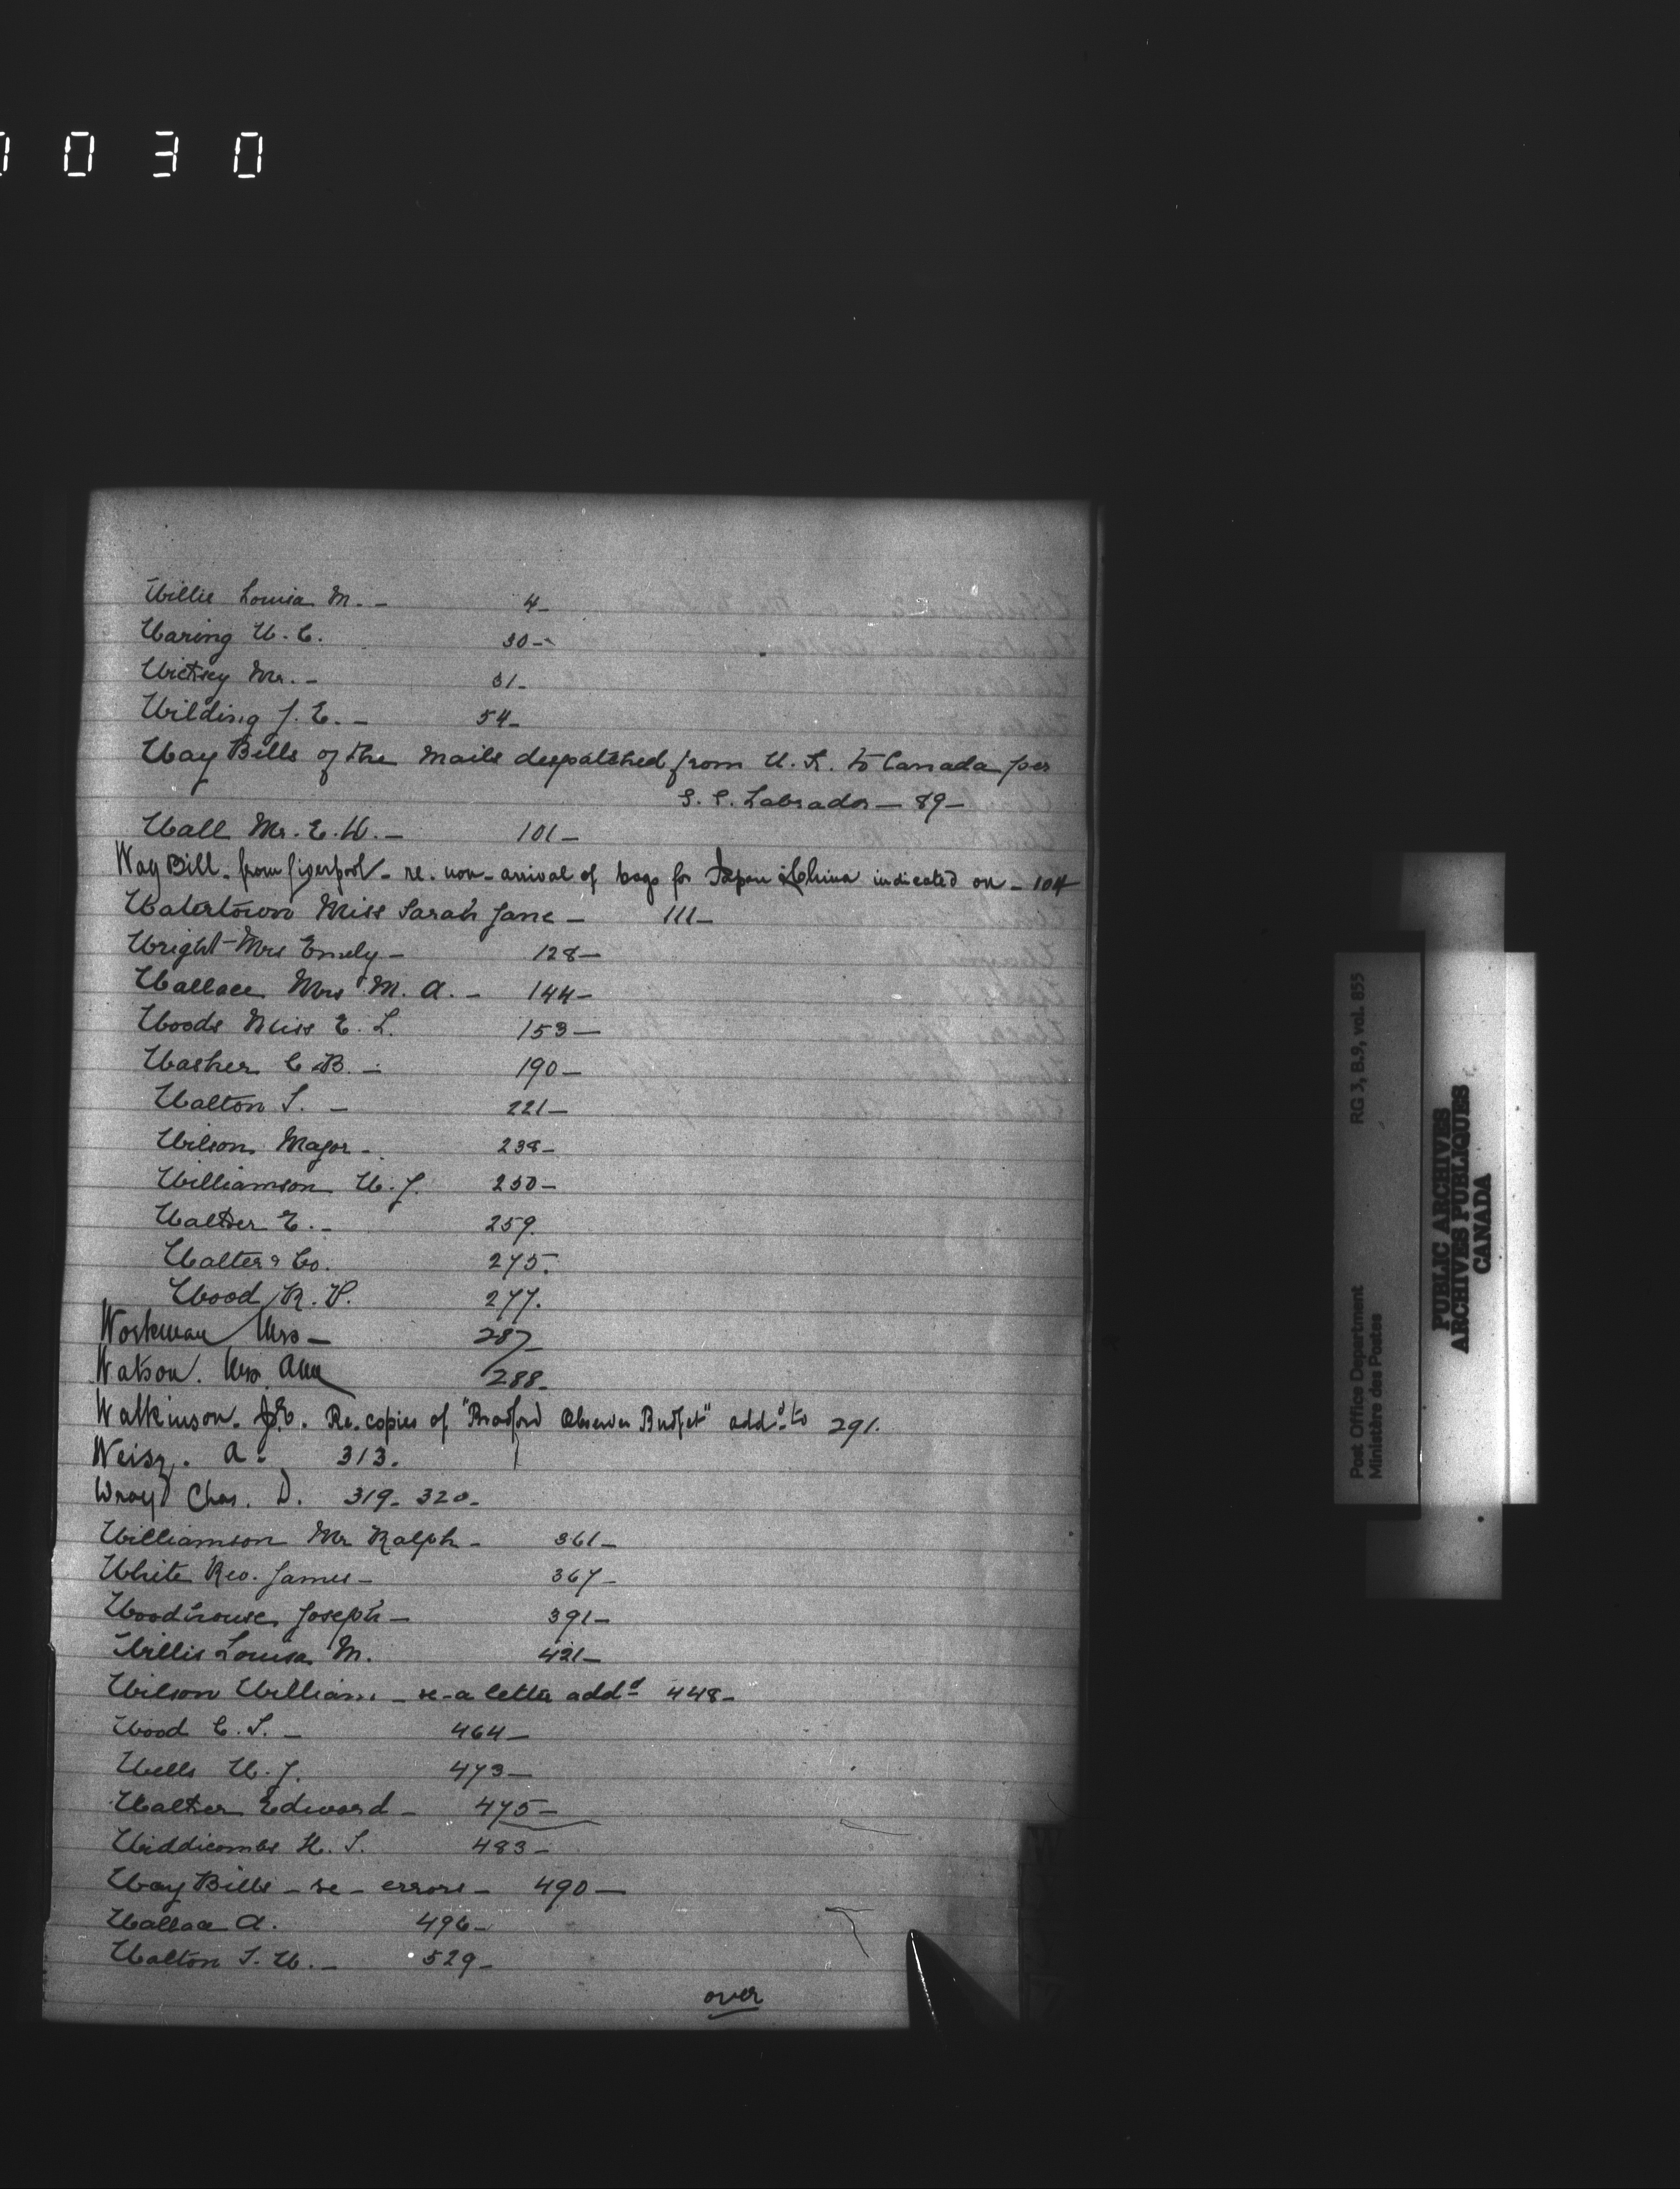 0030
Willie Louisa M. - 4-
Waring W. C. 30-
Wictsey Mr. - 31-
Wilding J. E. - 54-
Way Bills of the mails despatched from U. K. to Canada per
S. S. Labrador - 89-
Wall Mr. E. W. - 101-
Way Bill. from Liverpool - re. non-arrival of bags for Japan & China indicated on - 104
Watertown Miss Sarah Jane - 111-
Wright Mrs Emely - 128-
Wallace Mrs M. A. - 144-
Woods Miss E. L. 153-
Washer C. B. - 190-
Walton S. - 221-
Wilson Major - 238-
Williamson W. J. 250-
Walther E. - 259.
Walter & Co. 275.
Wood R. P. 277.
Workman Mrs - 287-
Watson. Mrs. Ann 288-
Watkinson. J.E. Re. copies of "Bradford Observer Budget" add.d to 291.
Weisz. A. 313.
Wray Chas. D. 319- 320-
Williamson Mr Ralph - 361-
White Rev. James - 367-
Woodhouse, Joseph - 391-
Willis Louisa M. 421-
Wilson William - re-a letter addd 448-
Wood C. S. - 464-
Wells W. J. 473-
Walther Edward - 475-
Widdicombe H. S. 483-
Way Bills - re - errors - 490-
Wallace A. 496-
Walton S. W. - 529-
over
RG 3, B.9, vol. 855
Post Office Department
Ministère des Postes
PUBLIC ARCHIVES
ARCHIVES PUBLIQUES
CANADA